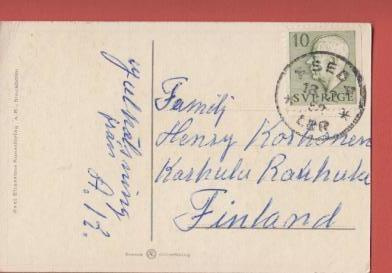 Julhälsning
från
A. 12.
Familj
Henry Korhonen
Karhula Rauhala
Finland
10
SVERIGE
ÅSEDA
LBR
Axel Eliassons Konstförlag A.-B. Stockholm
Svensk